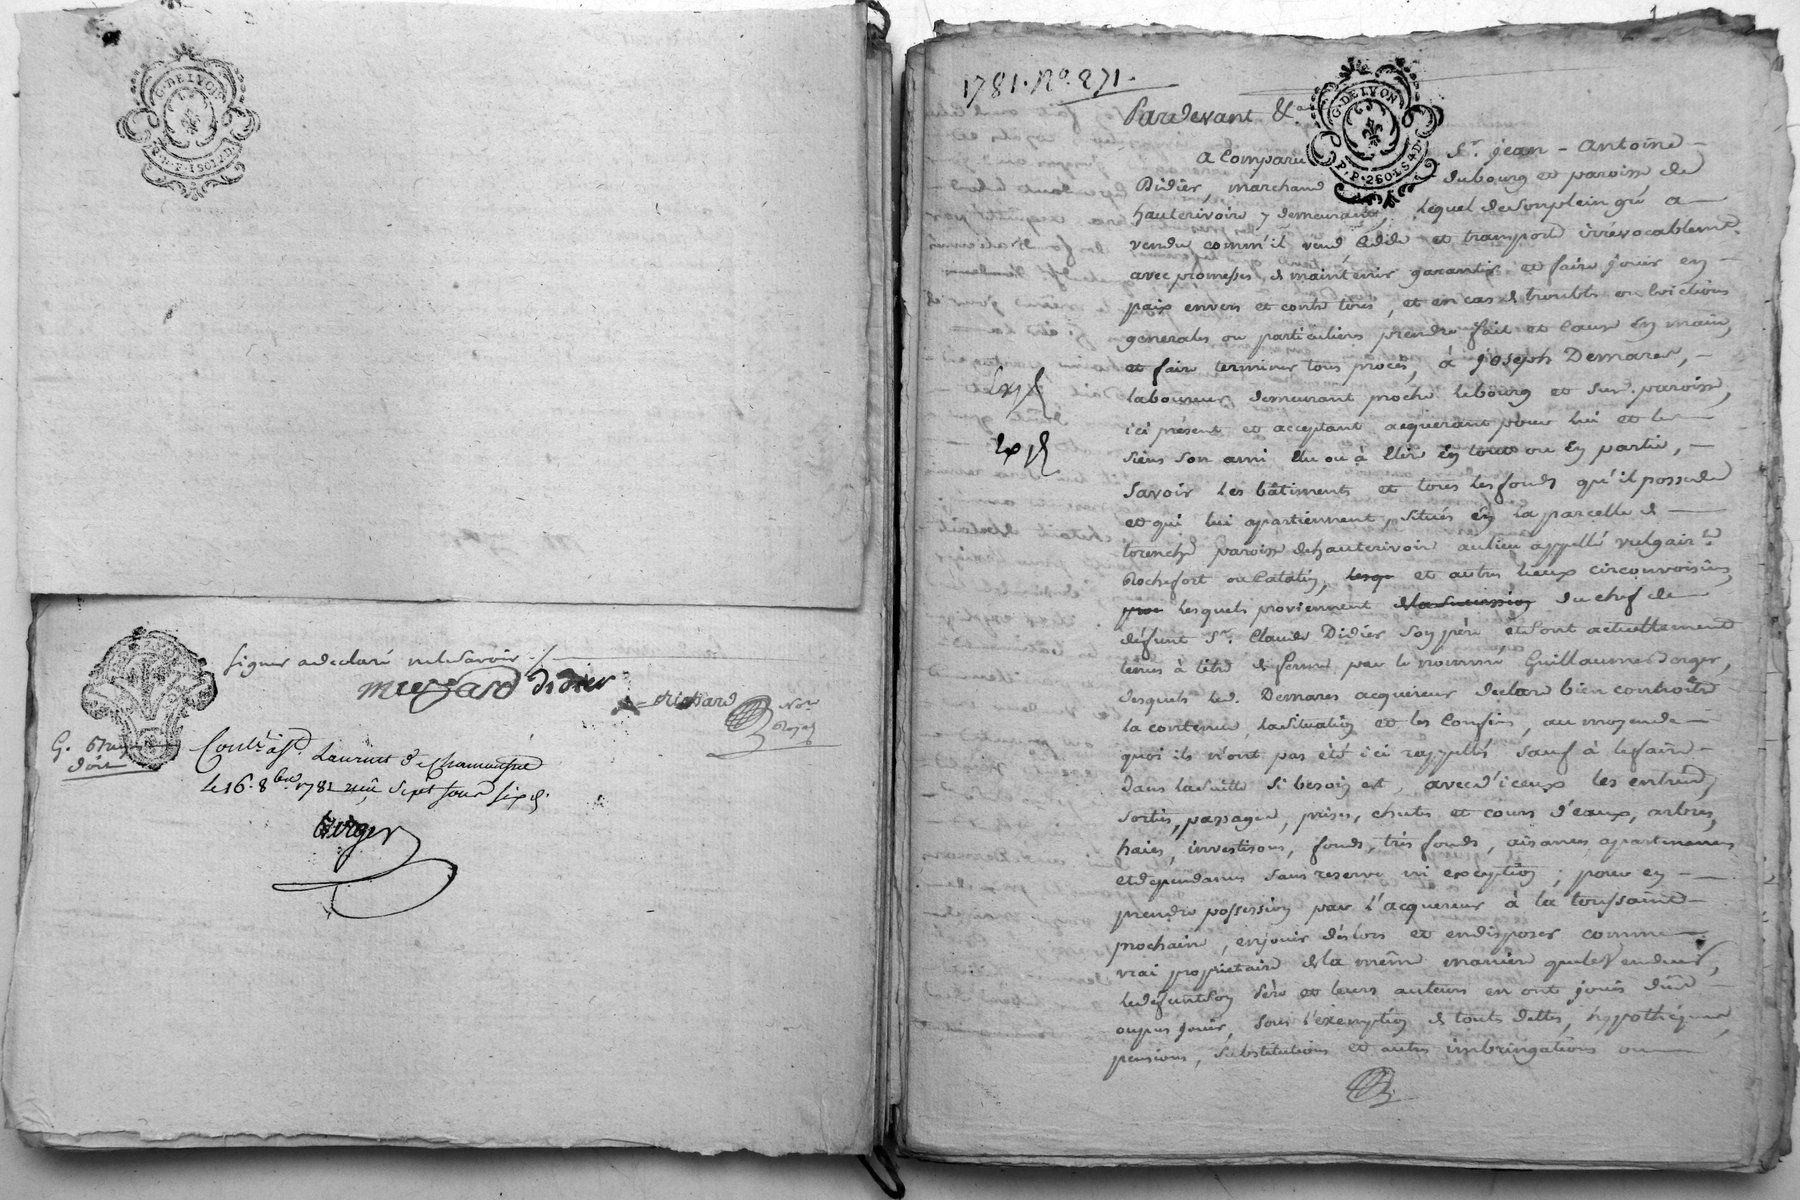 G. DE LYON
signer a declaré ne le savoir ./.
mie Didier
Richard
Not.re
Royal
G.
doit
Contr. à St. Laurent de Chamousset
le 16. 8.bre 1781 reçu sept sous six d.
Berger
1781. N.o 271.
G. DE LYON
P. P. 2 SOLS 4 D.
Pardevant &.a
a Comparu S.r jean - antoine
Didier, marchand du bourg et paroisse de
hauterivoire y demeurant, lequel de son plein gré a
vendu comm'il vend Cede et transporte irrevocablem.t
avec promesses de maintenir garantir et faire jouir en
paix envers et contre tous, et en cas de troubles ou evictions
generales ou particulieres prendre fait et cause En main,
et faire terminer tous procès, à joseph Demares,
laboureur demeurant proche le bourg et sus. paroisse,
ici présent et acceptant acquerant pour lui et les
siens son ami elu ou à Elire En tout ou En partie,
Savoir les bâtiments et tous les fonds qu'il possede
et qui lui apartiennent, situés En la parcelle de
torenche paroisse de hauterivoire au lieu appellé vulgair.t
Rochefort ou Catalin, lesqu et autres lieux circonvoisins,
pro lesquels proviennent de la succession du chef de
défunt S.r Claude Didier son père, et sont actuellement
tenus à titre de ferme par le nommé Guillaume Berger,
desquels led. Demares acquereur declare bien connoître
la contenue, la situation et les Confins, au moyen de
quoi ils n'ont pas été ici rappellés sauf à le faire
dans la suite si besoin est, avec d'iceux les entrées,
sorties, passages, prises, chutes et cours d'eaux, arbres,
haies, investisons, fonds, très fonds, aisances, apartenances
et dependances sans reserve ni exception; pour en
prendre possession par l'acquereur à la toussaint
prochaine, en jouir dèslors et en disposer comme
vrai proprietaire de la même maniere que le Vendeur,
le défunt son Père et leurs auteurs en ont joui dûe
ou pus jouir, sous l'exemption de toutes dettes, hypothéques,
pensions, substitutions et autres imbringations ou